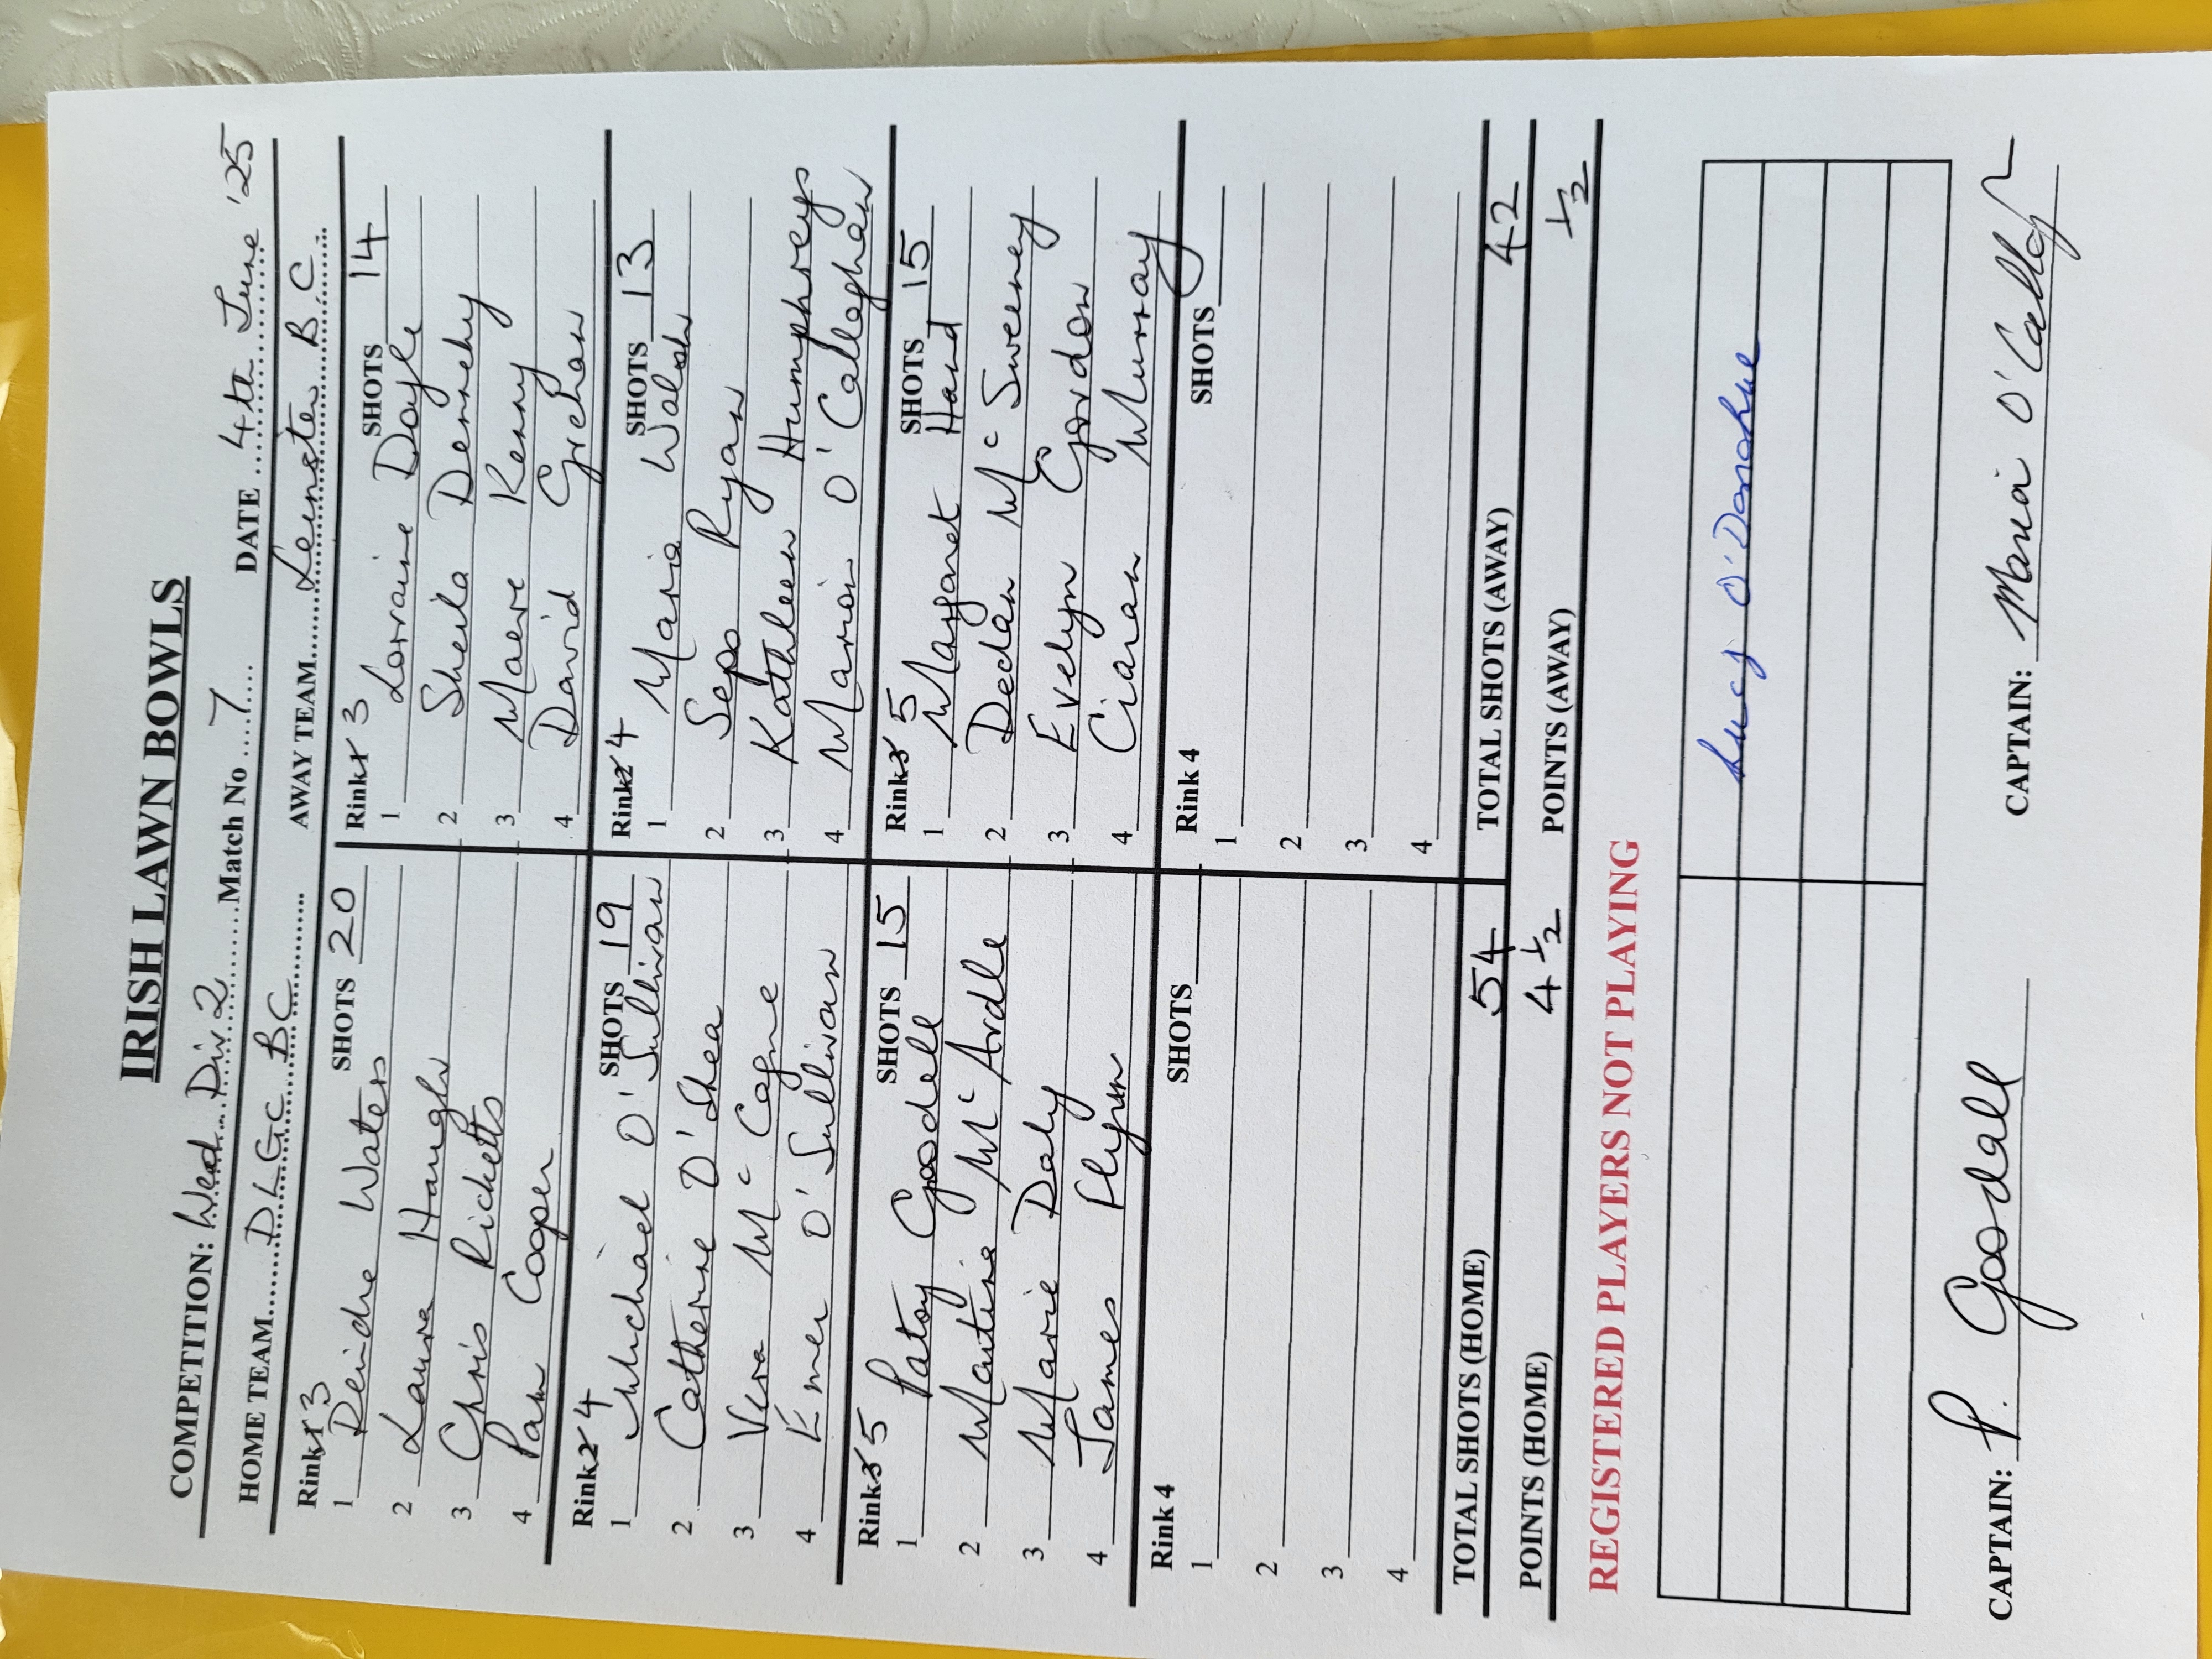 IRISH LAWN BOWLS
COMPETITION: Wed. Div 2 Match No 7 DATE 4th June '25
HOME TEAM D L G C B C AWAY TEAM Leinster B. C.
Rink 3 SHOTS 20
1 Deirdre Waters
2 Laura Haugh
3 Chris Ricketts
4 Pam Cooper
Rink 3 SHOTS 14
1 Lorraine Doyle
2 Sheila Dennehy
3 Maeve Kenny
4 David Grehan
Rink 4 SHOTS 19
1 Michael O'Sullivan
2 Catherine O'Shea
3 Vera Mc Cagne
4 Emer O'Sullivan
Rink 4 SHOTS 13
1 Maria Walsh
2 Sepo Ryan
3 Kathleen Humphreys
4 Marion O'Callaghan
Rink 5 SHOTS 15
1 Patsy Goodall
2 Martina Mc Ardle
3 Marie Daly
4 James Flynn
Rink 5 SHOTS 15
1 Margaret Hand
2 Declan Mc Sweeney
3 Evelyn Gordon
4 Ciaran Murray
Rink 4 SHOTS
1
2
3
4
Rink 4 SHOTS
1
2
3
4
TOTAL SHOTS (HOME) 54 TOTAL SHOTS (AWAY) 42
POINTS (HOME) 4 1/2 POINTS (AWAY) 1/2
REGISTERED PLAYERS NOT PLAYING
Lucy O'Donohue
CAPTAIN: P. Goodall CAPTAIN: Maria O'Callaghan